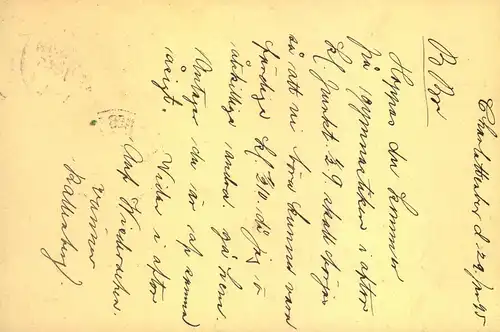 Charlottenburg d. 22/10 95
B Bror
Hoppas du kommer
på gymnastiken i afton
kl. punkt ½ 9. skall börja
så att vi böra kunna vara
färdiga kl. ½10. då jag ö
åtskilliga andra gå hem
Antager du är af samma
åsigt.
Vidare i afton
Auf Wiedersehen.
vännen